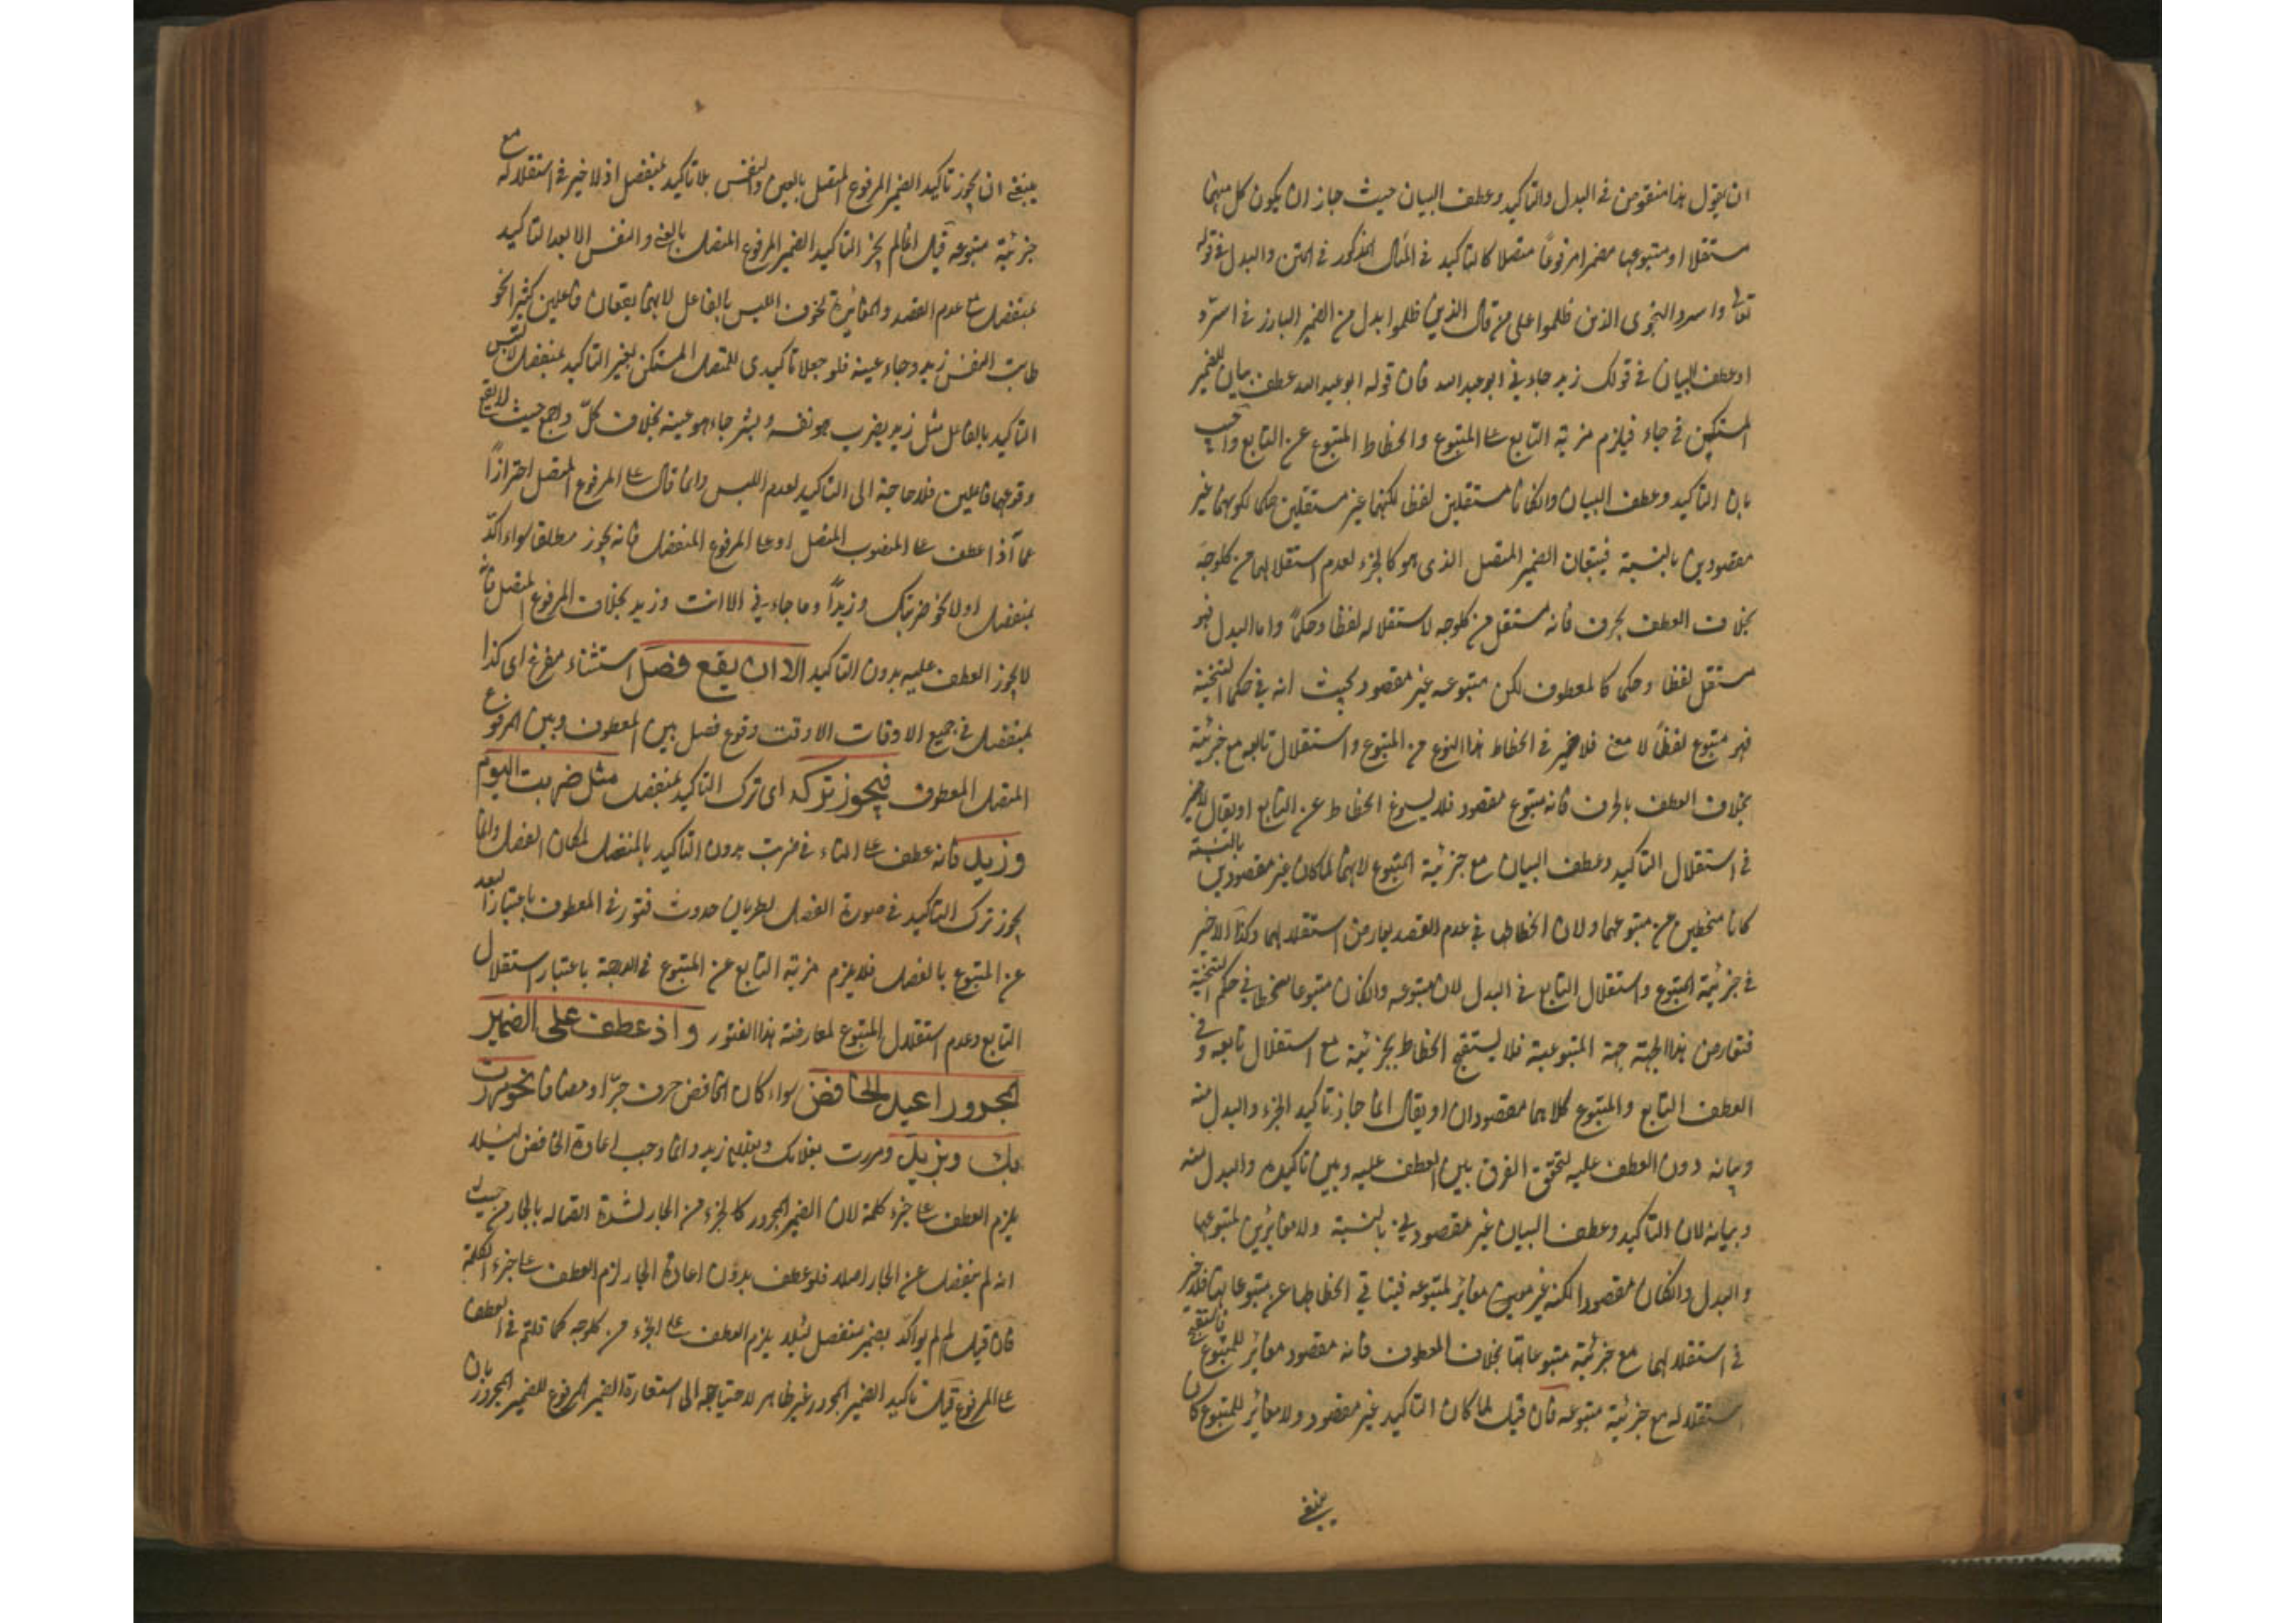 ان يقول هذا منقوض في البدل والتاكيد وعطف البيان حيث جاز ان يكون كل منهما
مستقلا ومتبوعها مضمرا مرفوعا متصلا كالتاكيد في المثال المذكور في المتن والبدل في قوله
تعالى واسروا النجوى الذين ظلموا على من قال الذين ظلموا بدل من الضمير البارز في اسرّوا
او عطف البيان في قولك زيد جاءني ابو عبد الله فان قوله ابو عبد الله عطف بيان للضمير
المستكن في جاء فيلزم مزية التابع على المتبوع وانحطاط المتبوع عن التابع واجيب
بان التاكيد وعطف البيان وان كانا مستقلين لفظا لكنهما غير مستقلين حكما لكونهما غير
مقصودين بالنسبة فيتبعان الضمير المتصل الذى هو كالجزء لعدم استقلالهما من كل وجه
بخلاف العطف بحرف فانه مستقل من كل وجه لاستقلاله لفظا وحكما واما البدل فهو
مستقل لفظا وحكما كالمعطوف لكن متبوعه غير مقصود بحيث انه في حكم التنحية
فهو متبوع لفظاً لا معنى فلا ضير في انحطاط هذا النوع من المتبوع واستقلال تابعه مع جزئية
بخلاف العطف بالحرف فانه متبوع مقصود فلا يسوغ انحطاط عن التابع او يقال لا ضير
في استقلال التاكيد وعطف البيان مع جزئية المتبوع لانهما لما كان غير مقصودين بالنسبة
كانا منحطين عن متبوعهما ولان انحطاطهما في عدم القصد يعارض استقلالهما وكذا لا ضير
في جزئية المتبوع واستقلال التابع في البدل لان متبوعه وان كان متبوعا منحط في حكم التنحية
فتعارض هذا الجهة جهة المتبوعية فلا يستقبح انحطاط بجزئية مع استقلال تابعه وفي
العطف التابع والمتبوع كلاهما مقصودان او يقال انما جاز تاكيد الجزء والبدل منه
وبيانه دون العطف عليه لتحقق الفرق بين العطف عليه وبين تاكيده والبدل منه
وبيانه لان التاكيد وعطف البيان غير مقصودين بالنسبة ولا مغايرين لمتبوعهما
والبدل وان كان مقصودا لكنه غير مغاير لمتبوعه فينافي انحطاطها عن متبوعاتها فلا ضير
في استقلالها مع جزئية متبوعاتها بخلاف المعطوف فانه مقصود مغاير للمتبوع فاستقبح
استقلاله مع جزئية متبوعه فان قيل لما كان التاكيد غير مقصود ولا مغاير للمتبوع كان
ينبغي
ينبغي ان يجوز تاكيد الضمير المرفوع المتصل بالعين والنفس بلا تاكيد بمنفصل اذ لا ضير في استقلاله مع
جزئية متبوعه قيل انما لم يجز التاكيد الضمير المرفوع المتصل بالعين والنفس الا بعد التاكيد
بمنفصل على عدم القصد والمغايرة لخوف اللبس بالفاعل لانهما يقعان فاعلين كثيرا نحو
طابت النفس زيد وجاء عينه فلو جعلا تاكيدى للمتصل المستكن بغير التاكيد بمنفصل لالتبس
التاكيد بالفاعل مثل زيد يضرب هو نفسه وبشر جاء هو عينه بخلاف كلّ واجمع حيث لا يقع
وقوعهما فاعلين فلا حاجة الى التاكيد لعدم اللبس وانما قال على المرفوع المتصل احترازاً
عما اذا عطف على المنصوب المتصل او على المرفوع المنفصل فانه يجوز مطلقا سواء اكد
بمنفصل او لا نحو ضربتك وزيداً وما جاءني الا انت وزيد بخلاف المرفوع المتصل فانه
لا يجوز العطف عليه بدون التاكيد الا ان يقع فصل استثناء مفرغ اى كذا
بمنفصل في جميع الاوقات الا وقت وقوع فصل بين المعطوف وبين المرفوع
المتصل المعطوف فيجوز تركه اى ترك التاكيد بمنفصل مثل ضربت اليوم
وزيد فانه عطف على التاء في ضربت بدون التاكيد بالمنفصل لمكان الفصل وانما
يجوز ترك التاكيد في صورة الفصل لطريان حدوث فتور في المعطوف باعتبار البعد
عن المتبوع بالفصل فلا يلزم مزية التابع عن المتبوع في الدرجة باعتبار استقلال
التابع وعدم استقلال المتبوع لمعارضة هذا الفتور واذ عطف على الضمير
المجرور اعيد الخافض سواء كان الخافض حرف جرّ او مضافا نحو مررت
بك وبزيد ومررت بغلامك وبغلام زيد وانما وجب اعادة الخافض لئلا
يلزم العطف على جزء كلمة لان الضمير المجرور كالجزء من الجار لشدة اتصاله بالجار من حيث
انه لم ينفصل عن الجار اصلا فلو عطف بدون اعادة الجار لزم العطف على جزء الكلمة
فان قيل لم لم يؤكد بضمير منفصل لئلا يلزم العطف على الجزء من كل وجه كما قلتم في العطف
على المرفوع قيل تاكيد الضمير المجرور غير ظاهر لاحتياجه الى استعارة الضمير المرفوع للضمير المجرور بان